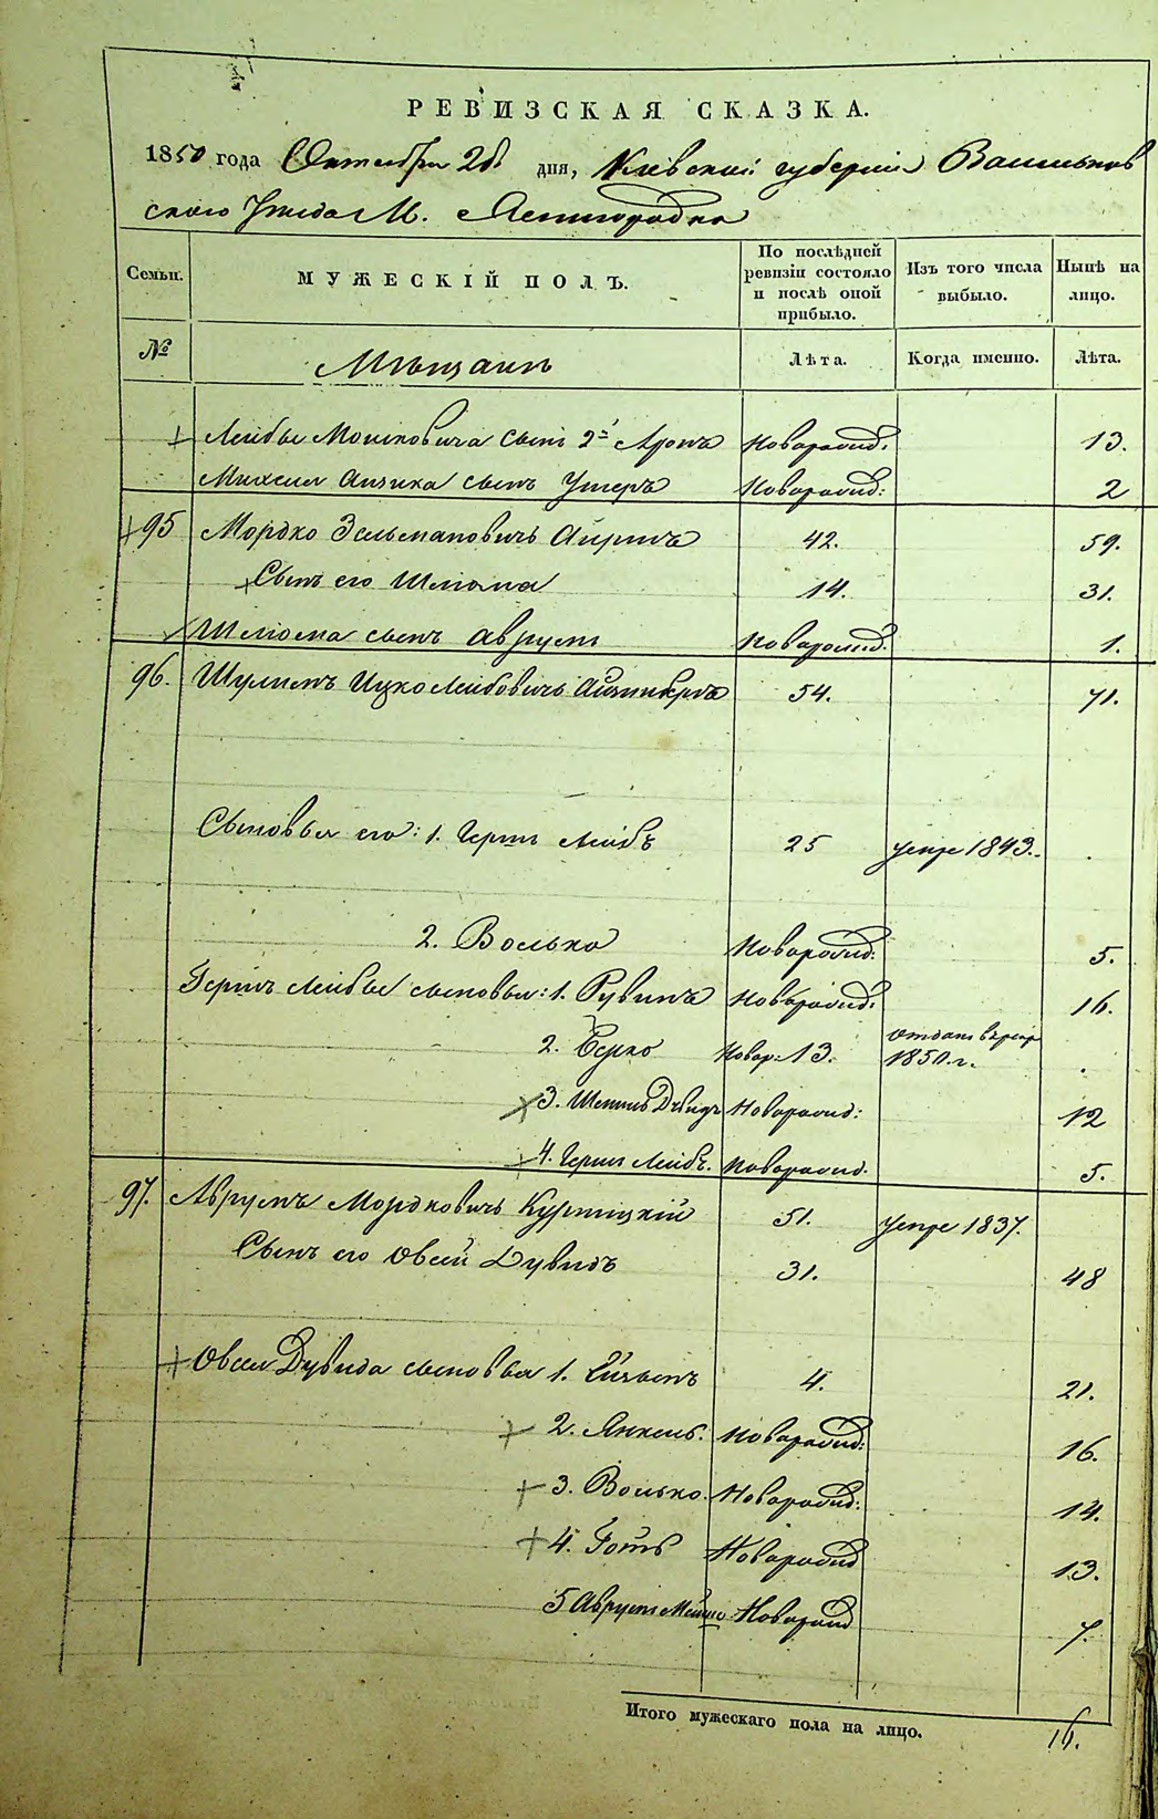 РЕВИЗСКАЯ СКАЗКА.
1850 года Октября 26 дня, Киевской губернии Васильков
скаго Уезда М. Ясногородка
Семьи. МУЖЕСКІЙ ПОЛЪ. По послѣдней ревизіи состояло и послѣ оной прибыло. Изъ того числа выбыло. Нынѣ на лицо.
№ Мѣщанъ Лѣта. Когда именно. Лѣта.
Лейбы Мошковича сынъ 2й Аронъ новорожд. 13.
Михеля Айзика сынъ Ушеръ Новорожд: 2
95 Мордко Зельмановичъ 42. 59.
Сынъ его Шлиома 14. 31.
Шлиома сынъ Аврумъ Новорожд. 1.
96. Шулимъ Ицко Лейбовичъ 54. 71.
Сыновья его: 1. Гершъ Лейбъ 25 умре 1843. .
2. Волько Новорожд: 5.
Гершъ Лейбы сыновья: 1. Рувинъ Новорожд: 16.
2. Берко Новор: 13. отданъ в рекр 1850. г. .
3. Шлиома Дувидъ Новорожд: 12
4. Гершъ Лейбъ. Новорожд. 5.
97. Аврумъ Мордковичъ 51. умре 1837.
Сынъ его Овсей Дувидъ 31. 48
Овсея Дувида сыновья 1. 4. 21.
2. Янкель. Новорожд: 16.
3. Волько. Новорожд: 14.
4. Новорожд 13.
5 Аврумъ Новорожд 7.
Итого мужескаго пола на лицо. 16.